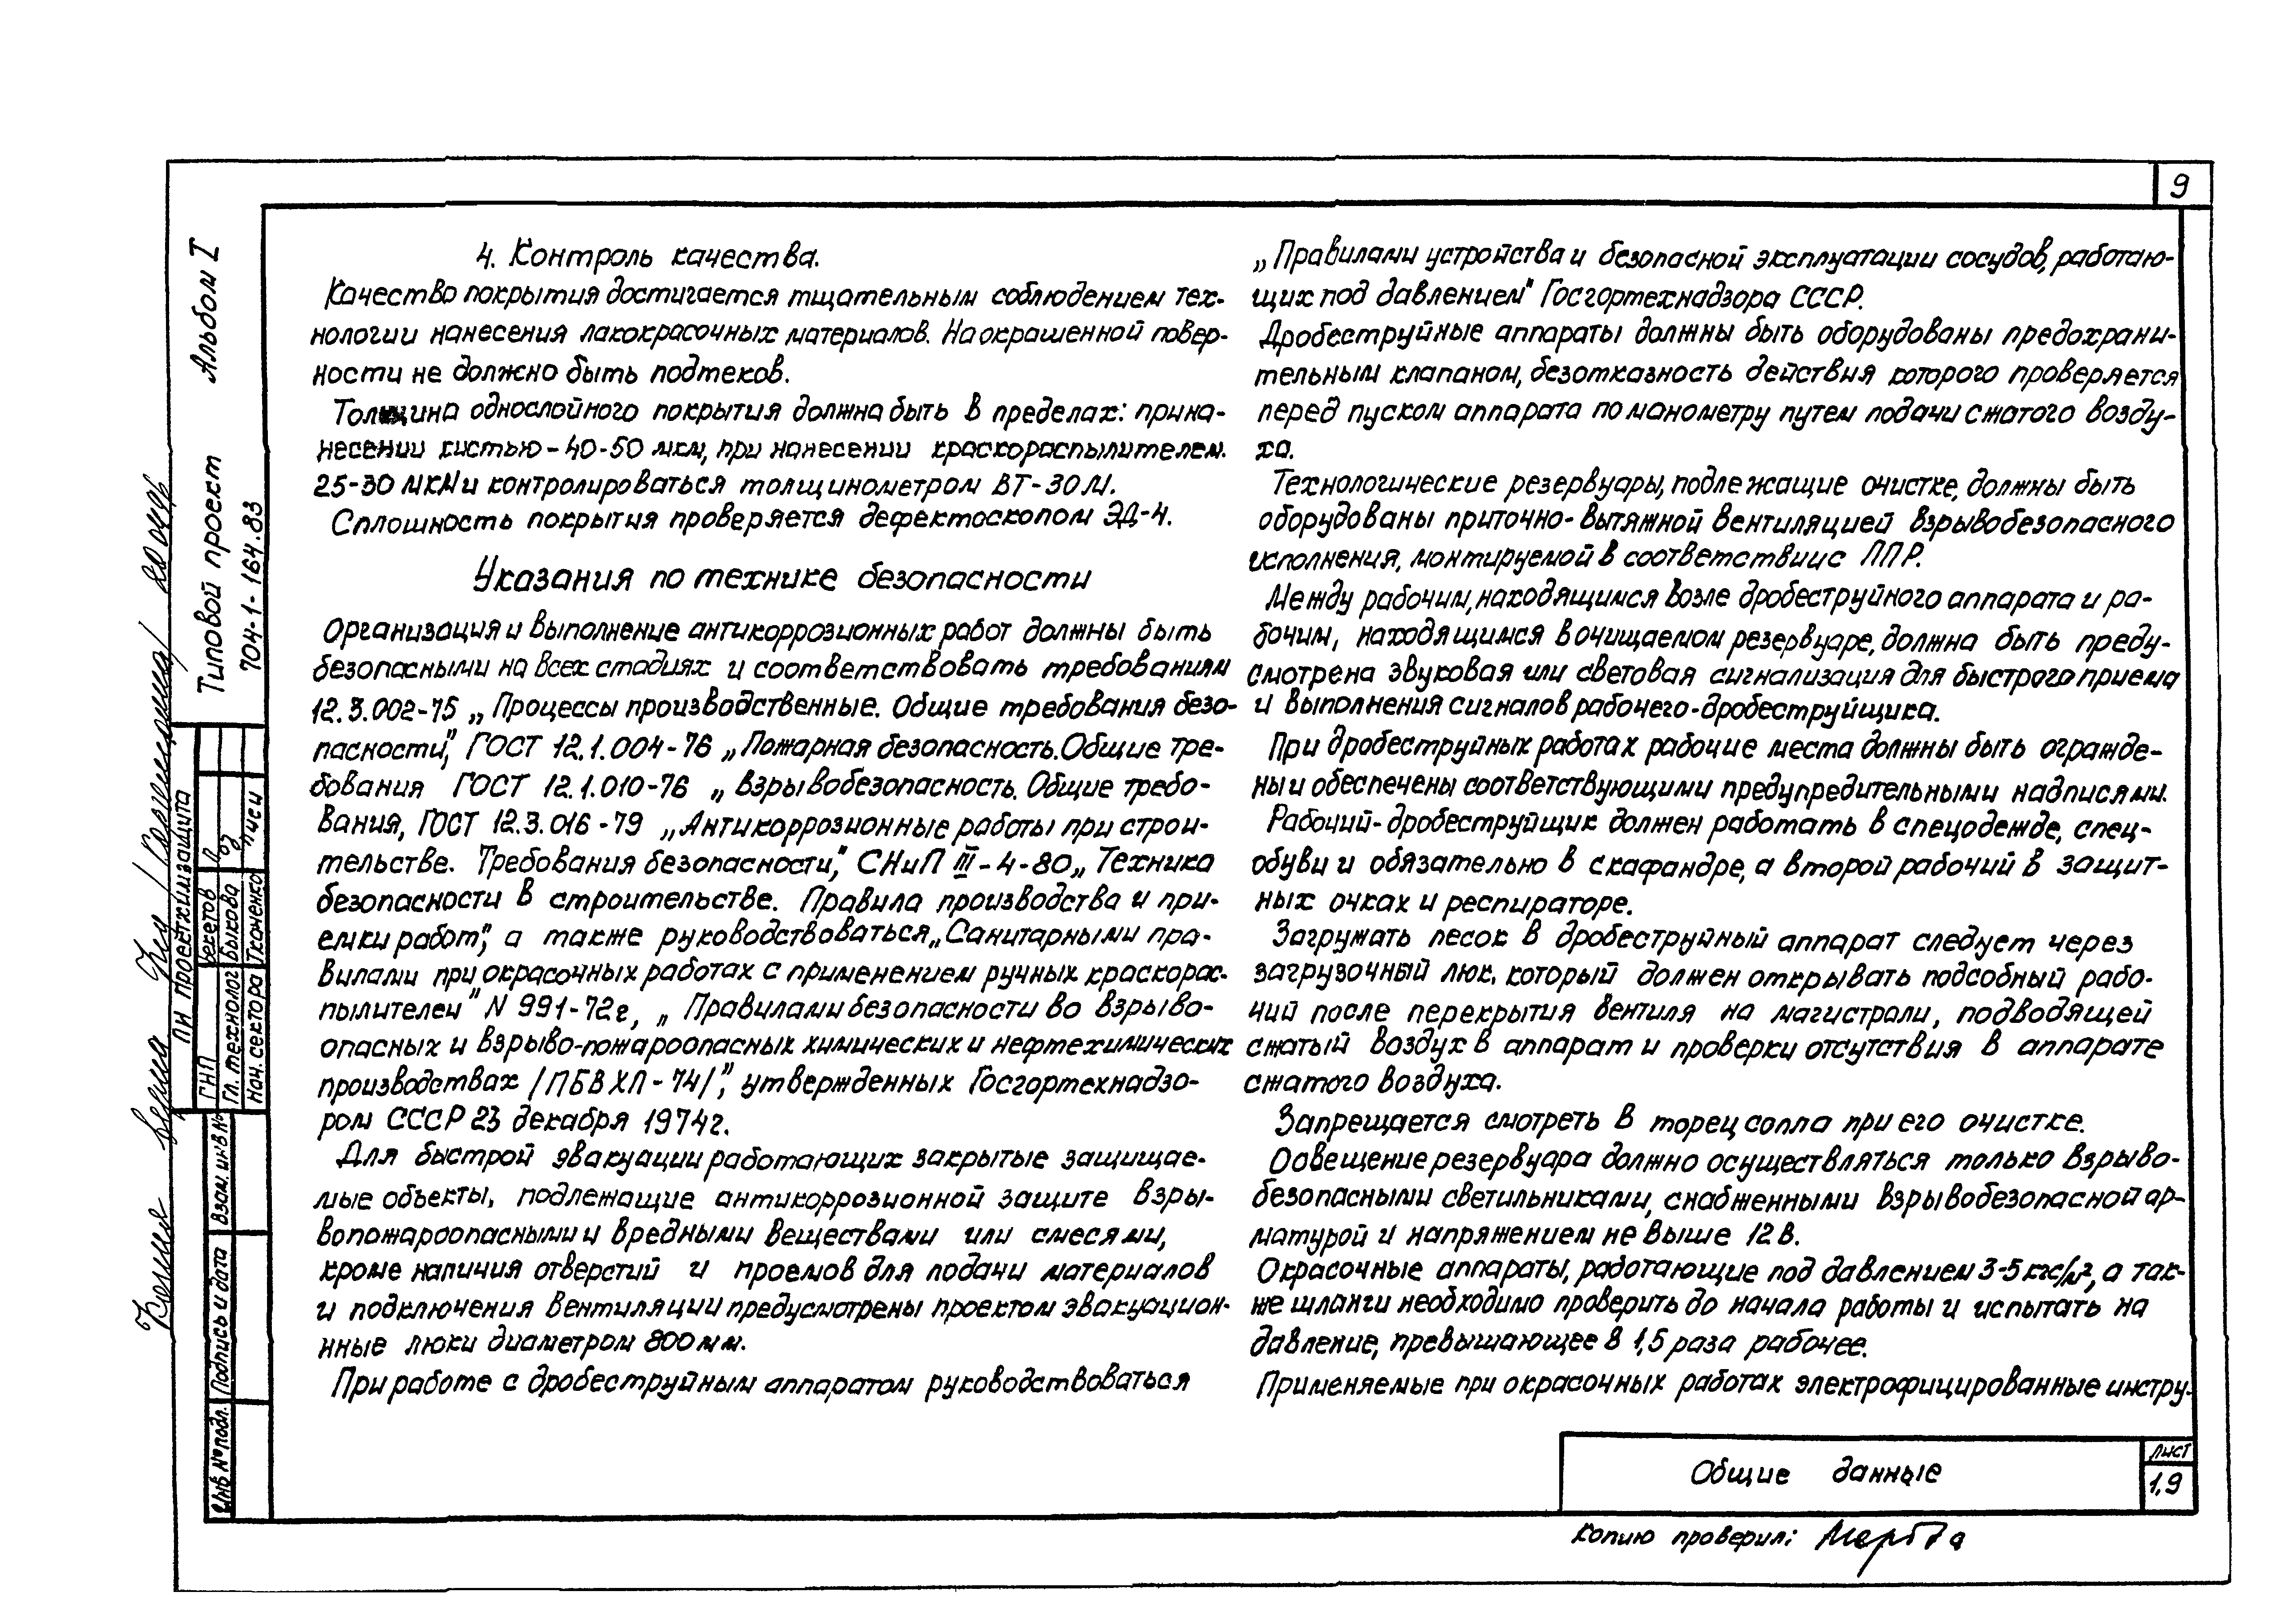 9
4. Контроль качества.
Качество покрытия достигается тщательным соблюдением тех-
нологии нанесения лакокрасочных материалов. На окрашенной повер-
ности не должно быть подтеков.
Толщина однослойного покрытия должна быть в пределах: при на-
несении кистью - 40-50 мкм, при нанесении краскораспылителем.
25-30 мкм и контролироваться толщинометром ВТ-30М.
Сплошность покрытия проверяется дефектоскопом ЭД-4.
Указания по технике безопасности
Организация и выполнение антикоррозионных работ должны быть
безопасными на всех стадиях и соответствовать требованиям
12.3.002-75 „Процессы производственные. Общие требования безо-
пасности", ГОСТ 12.1.004-76 „Пожарная безопасность. Общие тре-
бования ГОСТ 12.1.010-76 „Взрывобезопасность. Общие требо-
вания, ГОСТ 12.3.016-79 „Антикоррозионные работы при строи-
тельстве. Требования безопасности", СНиП III-4-80 „Техника
безопасности в строительстве. Правила производства и при-
емки работ", а также руководствоваться „Санитарными пра-
вилами при окрасочных работах с применением ручных краскорас-
пылителей" N 991-72г, „Правилами безопасности во взрыво-
опасных и взрыво-пожароопасных химических и нефтехимических
производствах /ПБВХП-74/", утвержденных Госгортехнадзо-
ром СССР 23 декабря 1974г.
Для быстрой эвакуации работающих закрытые защищае-
мые объекты, подлежащие антикоррозионной защите взры-
вопожароопасными и вредными веществами или смесями,
кроме наличия отверстий и проемов для подачи материалов
и подключения вентиляции предусмотрены проектом эвакуацион-
нные люки диаметром 800 мм.
При работе с дробеструйным аппаратом руководствоваться
„Правилами устройства и безопасной эксплуатации сосудов, работаю-
щих под давлением" Госгортехнадзора СССР.
Дробеструйные аппараты должны быть оборудованы предохрани-
тельным клапаном, безотказность действия которого проверяется
перед пуском аппарата по манометру путем подачи сжатого возду-
ха.
Технологические резервуары, подлежащие очистке, должны быть
оборудованы приточно-вытяжной вентиляцией взрывобезопасного
исполнения, монтируемой в соответствии с ППР.
Между рабочим, находящимся возле дробеструйного аппарата и ра-
бочим, находящимся в очищаемом резервуаре, должна быть преду-
смотрена звуковая или световая сигнализация для быстрого приема
и выполнения сигналов рабочего-дробеструйщика.
При дробеструйных работах рабочие места должны быть огражде-
ны и обеспечены соответствующими предупредительными надписями.
Рабочий-дробеструйщик должен работать в спецодежде, спец-
обуви и обязательно в скафандре, а второй рабочий в защит-
ных очках и респираторе.
Загружать песок в дробеструйный аппарат следует через
загрузочный люк, который должен открывать подсобный рабо-
чий после перекрытия вентиля на магистрали, подводящей
сжатый воздух в аппарат и проверки отсутствия в аппарате
сжатого воздуха.
Запрещается смотреть в торец сопла при его очистке.
Освещение резервуара должно осуществляться только взрыво-
безопасными светильниками, снабженными взрывобезопасной ар-
матурой и напряжением не выше 12 в.
Окрасочные аппараты, работающие под давлением 3-5 кгс/м², а так-
же шланги необходимо проверить до начала работы и испытать на
давление, превышающее в 1,5 раза рабочее.
Применяемые при окрасочных работах электрофицированные инстру-
Общие данные
Лист
1.9
Копию проверил:
Типовой проект Альбом I
704-1-164.83
ПИ Проектхимзащита
ГНП Бекетов
Гл. технолог Быкова
Нач. сектора Ткаченко
Взам. инв №
Подпись и дата
Инв № подл.
Копия верна